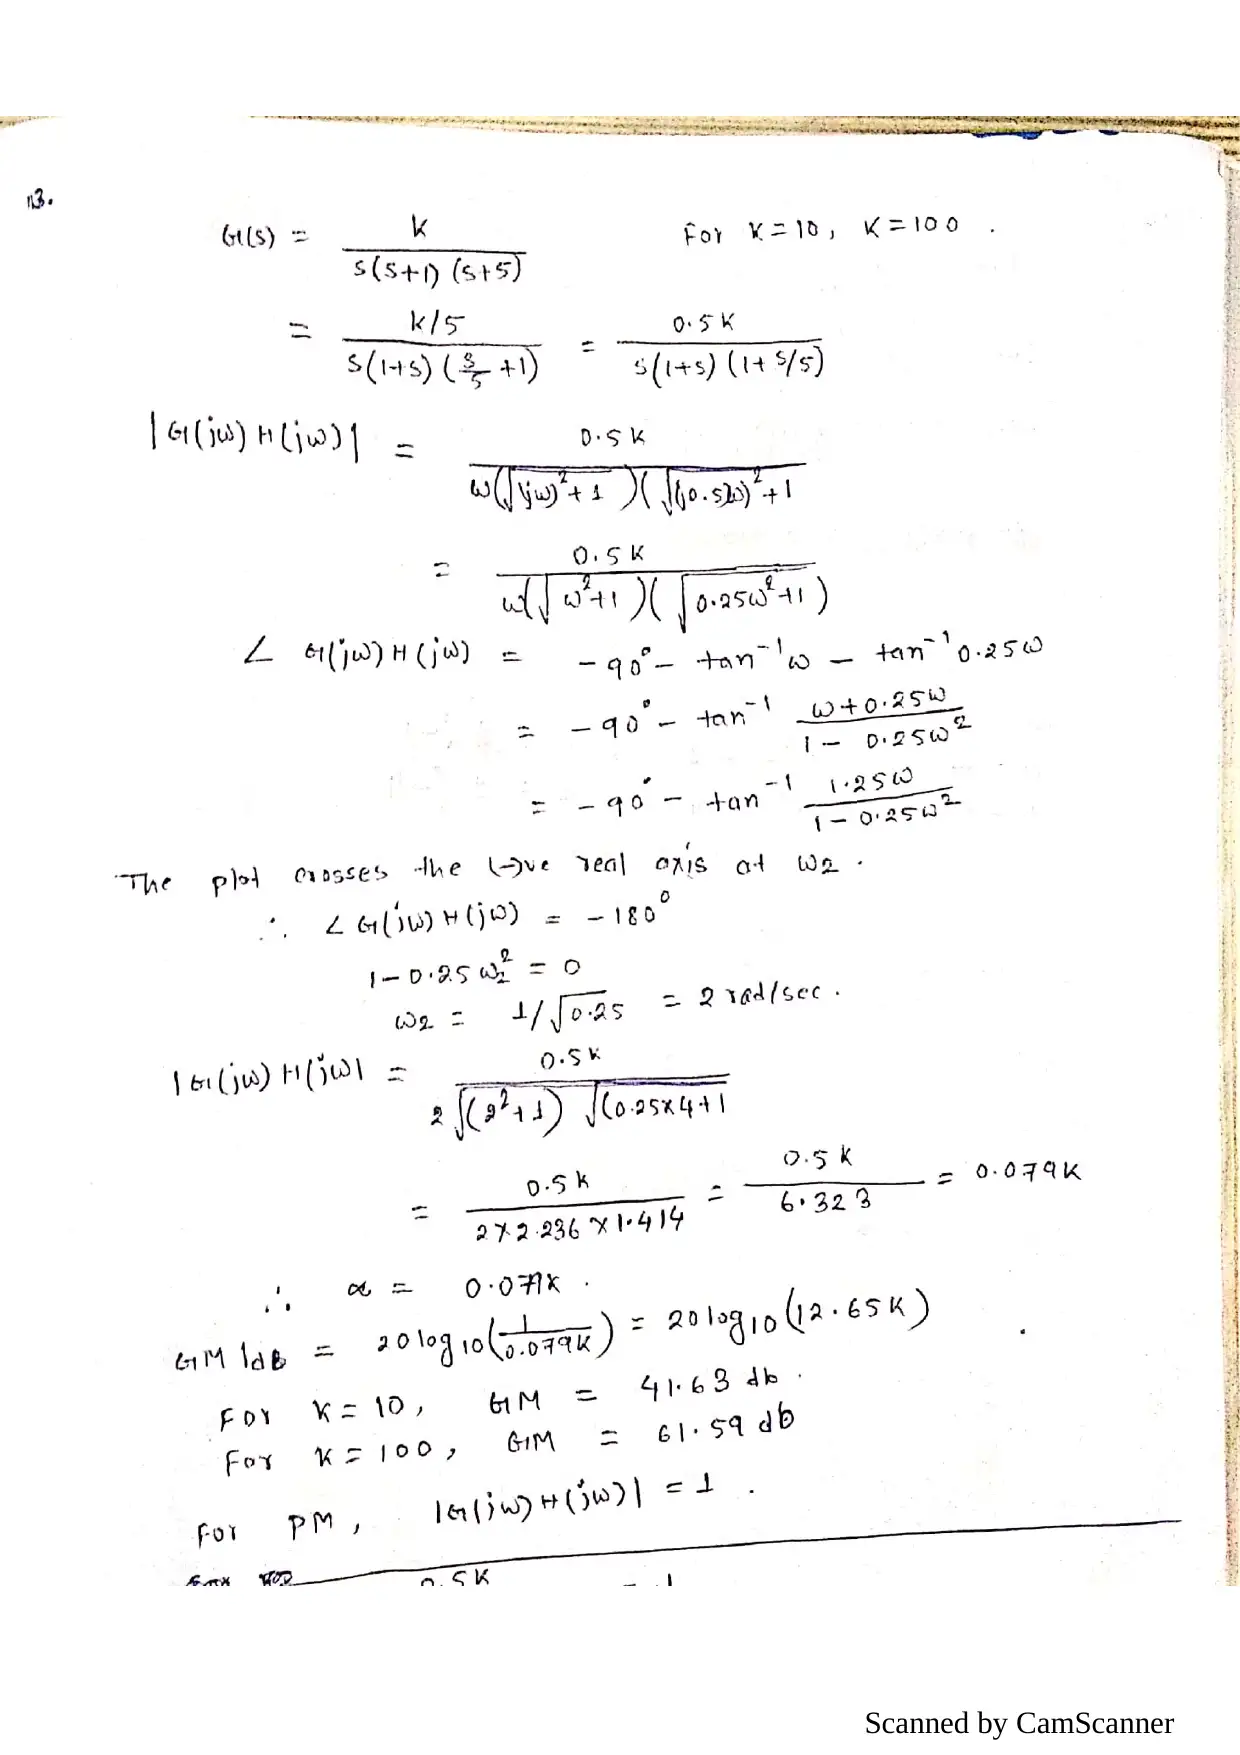 13.
G(s) = K / s(s+1) (s+5) For K=10, K=100.
= K/5 / s(1+s) (s/5 +1) = 0.5K / s(1+s) (1+s/5)
|G(jω) H(jω)| = 0.5K / ω(√(jω)²+1 )( √(j0.5ω)²+1
= 0.5K / ω(√ω²+1 )( √0.25ω²+1 )
∠ G(jω) H(jω) = -90° - tan⁻¹ω - tan⁻¹0.25ω
= -90° - tan⁻¹ ω+0.25ω / 1 - 0.25ω²
= -90° - tan⁻¹ 1.25ω / 1 - 0.25ω²
The plot crosses the (-)ve real axis at ω2.
∴ ∠ G(jω) H(jω) = -180°
1-0.25 ω₂² = 0
ω2 = 1/√0.25 = 2 rad/sec.
|G(jω) H(jω| = 0.5K / 2 √(2²+1) √(0.25×4+1
= 0.5K / 2×2.236×1.414 = 0.5K / 6.323 = 0.079K
∴ α = 0.079K.
GM |dB = 20log10(1/0.079K) = 20log10(12.65K)
For K=10, GM = 41.63 db.
For K=100, GM = 61.59 db
For PM, |G(jω) H(jω)| = 1.
0.5K = 1
Scanned by CamScanner